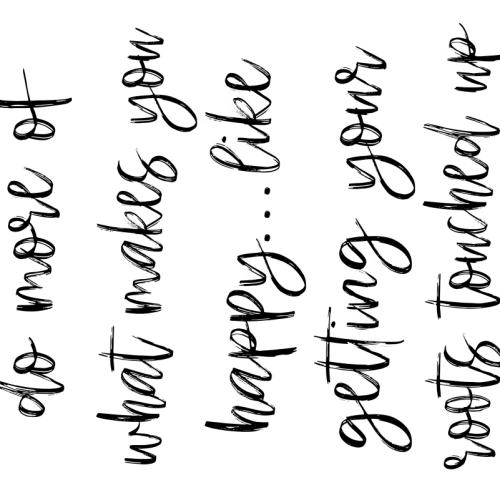 do more of
what makes you
happy... like
getting your
roots touched up